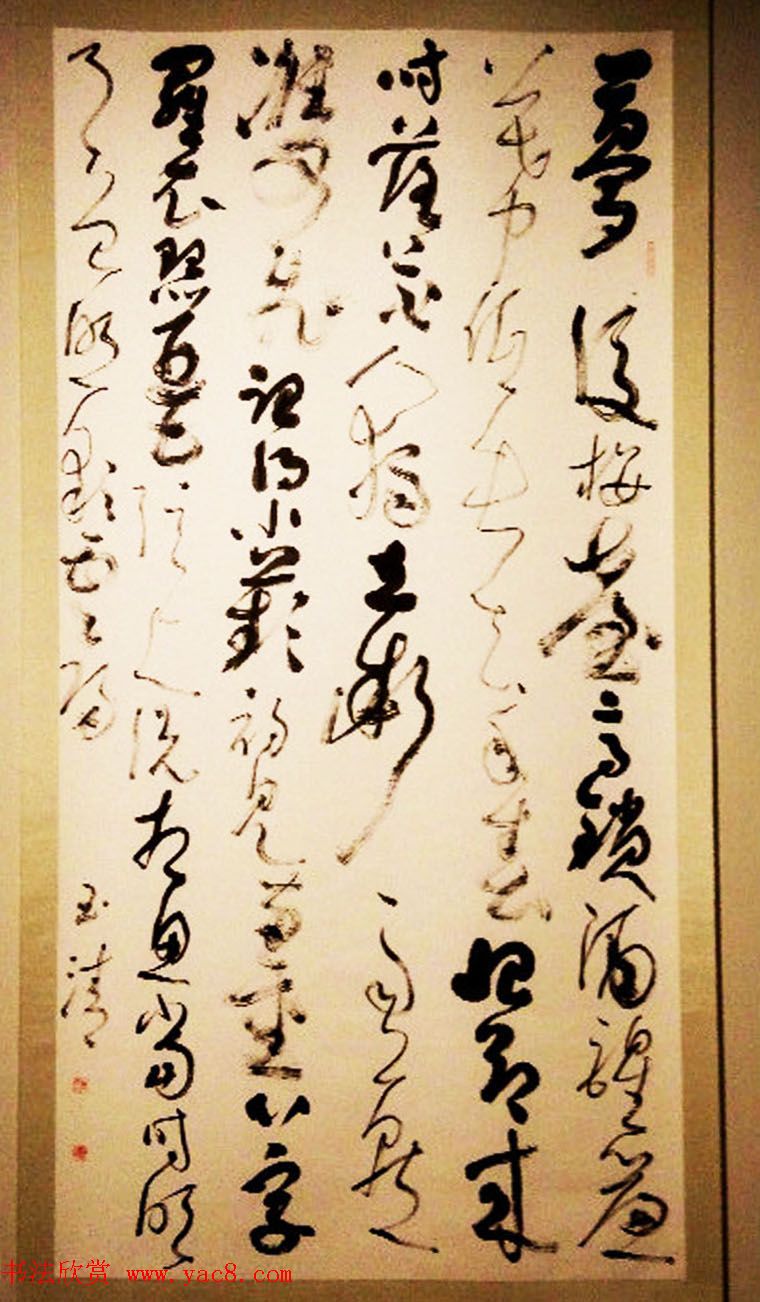 夢後楼臺高鎖酒醒簾
幕低垂去年春恨却来
时落花人独立微雨燕
雙飞记得小蘋初见两重心字
羅衣琵琶弦上说相思当时明
月在曾照彩雲归
玉清
书法欣赏 www.yac8.com